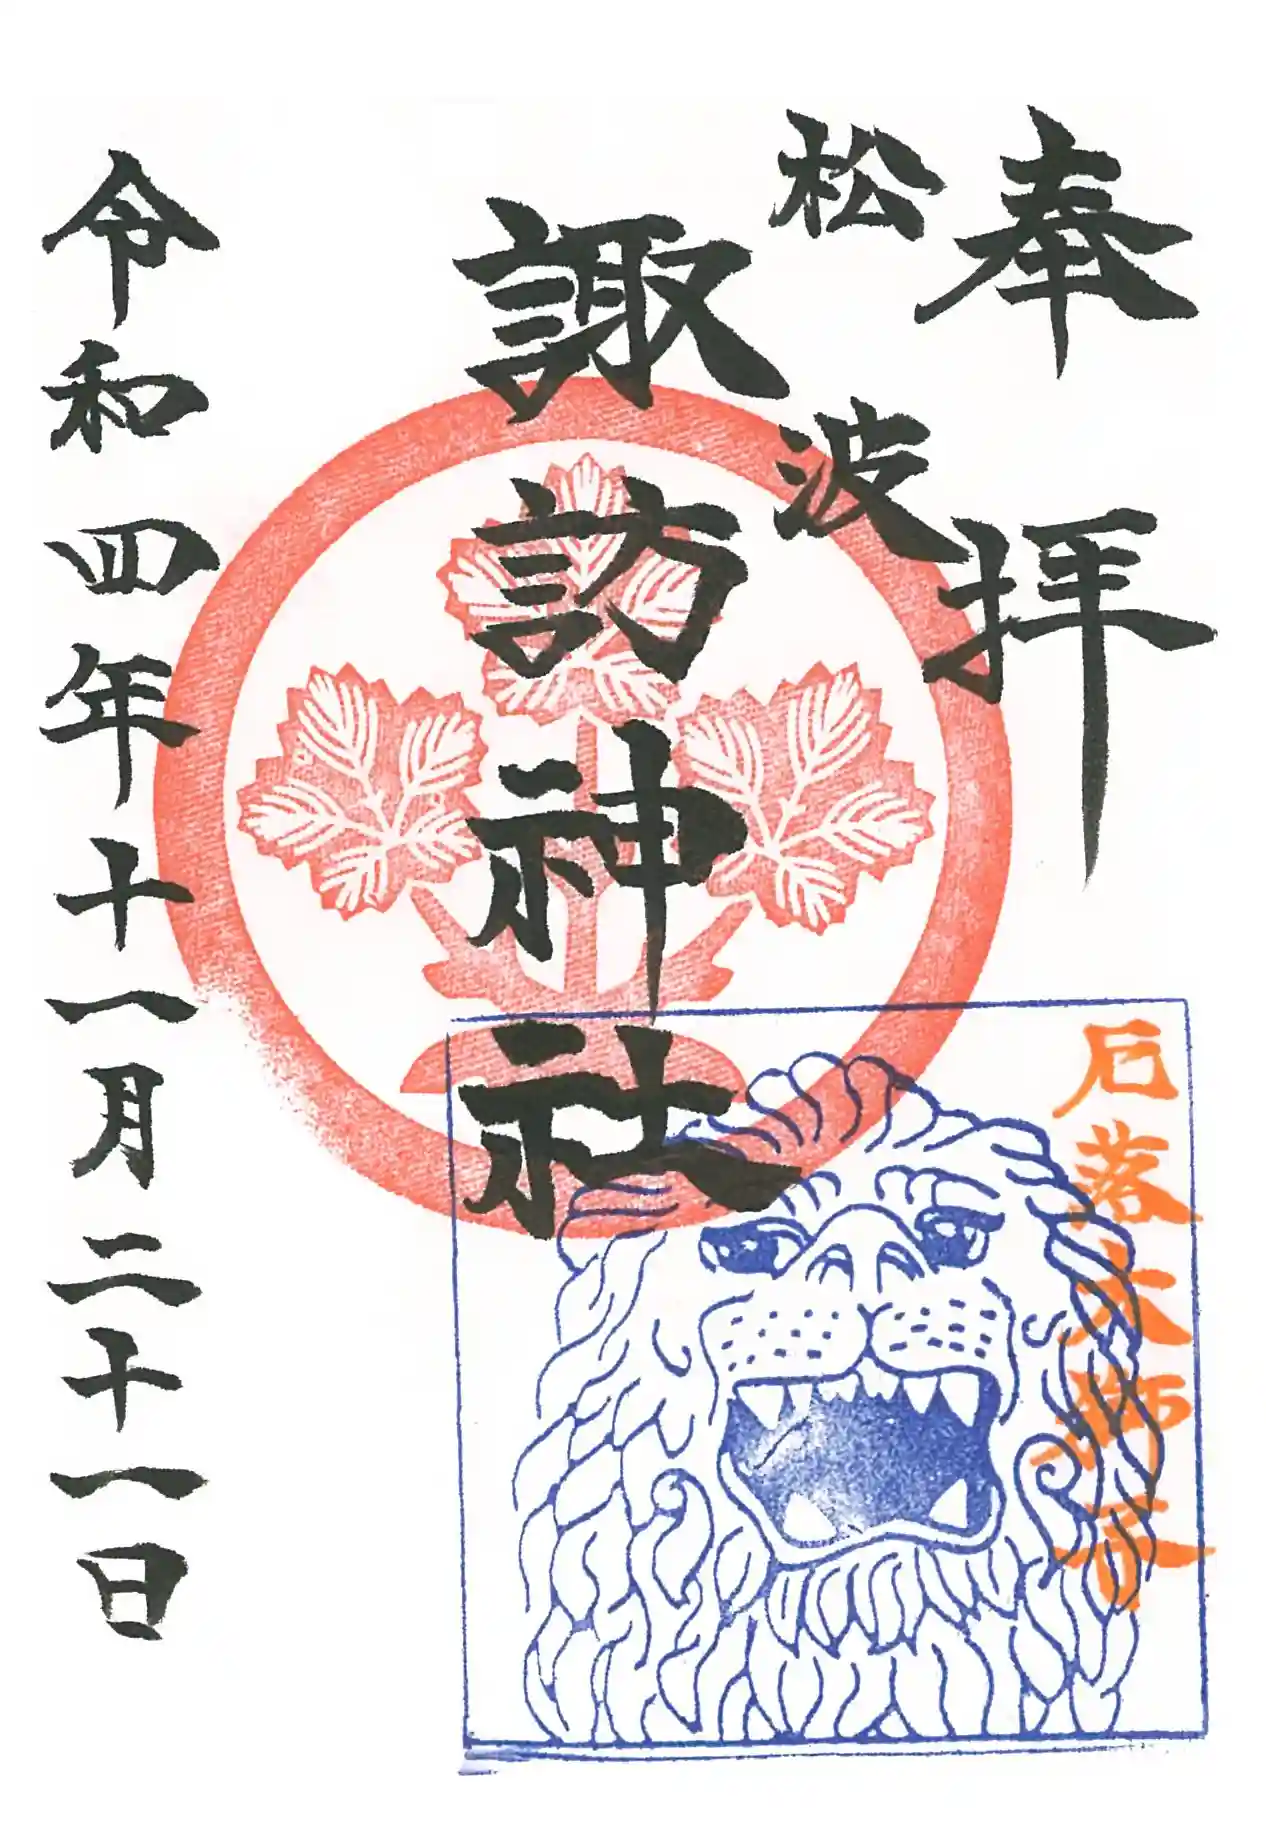 奉拝
松波
諏訪神社
令和四年十一月二十一日
厄落大獅子